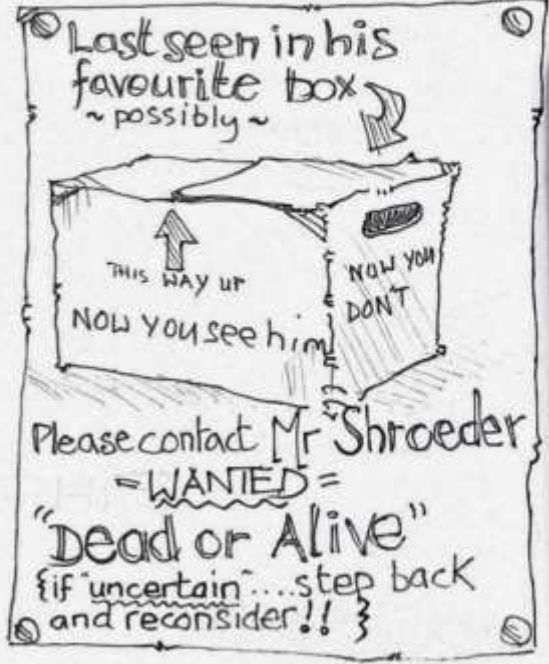 Last seen in his
favourite box
~ possibly ~
THIS WAY UP
NOW YOU see him
NOW YOU
DON'T
Please contact Mr Shroeder
= WANTED =
"Dead or Alive"
{if "uncertain"....step back
and reconsider!! }